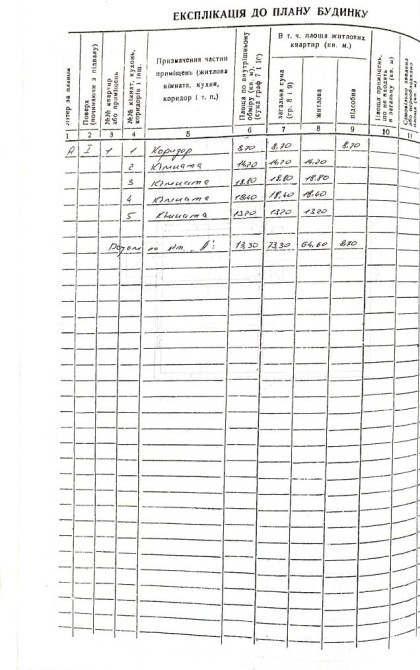 ЕКСПЛІКАЦІЯ ДО ПЛАНУ БУДИНКУ
Літер за планом
Поверх (починаючи з підвалу)
№№ квартир або приміщень
№№ кімнат, кухонь, коридорів і інш.
Призначення частин приміщень (житлова кімната, кухня, коридор і т. п.)
Площа по внутрішньому обміру (кв. м.) (сума граф 7 і 10)
В т. ч. площа житлових квартир (кв. м.)
загальна сума (гр. 8 і 9)
житлова
підсобна
Площа приміщень, що не входять в загальну (кв. м)
1 2 3 4 5 6 7 8 9 10 11
А І 1 1 Коридор 8,70 8,70 8,70
2 Кімната 14,20 14,20 14,20
3 Кімната 18,80 18,80 18,80
4 Кімната 18,40 18,40 18,40
5 Кімната 13,20 13,20 13,20
Разом по літ. „А": 73,30 73,30 64,60 8,70